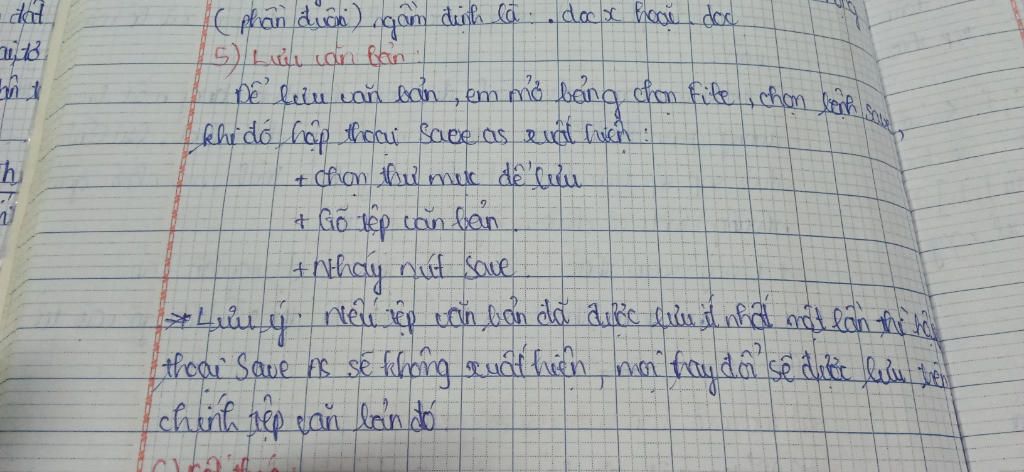 (phần đuôi) ngầm định là: .docx hoặc .doc
5) Lưu văn bản:
Để lưu văn bản, em mở bảng chọn File, chọn lệnh save,
khi đó hộp thoại Save as xuất hiện:
+ chọn thư mục để lưu
+ Gõ tệp văn bản
+ Nháy nút Save
→ Lưu ý: nếu tệp văn bản đã được lưu ít nhất một lần thì hộp
thoại Save As sẽ không xuất hiện, mọi thay đổi sẽ được lưu trên
chính tệp văn bản đó